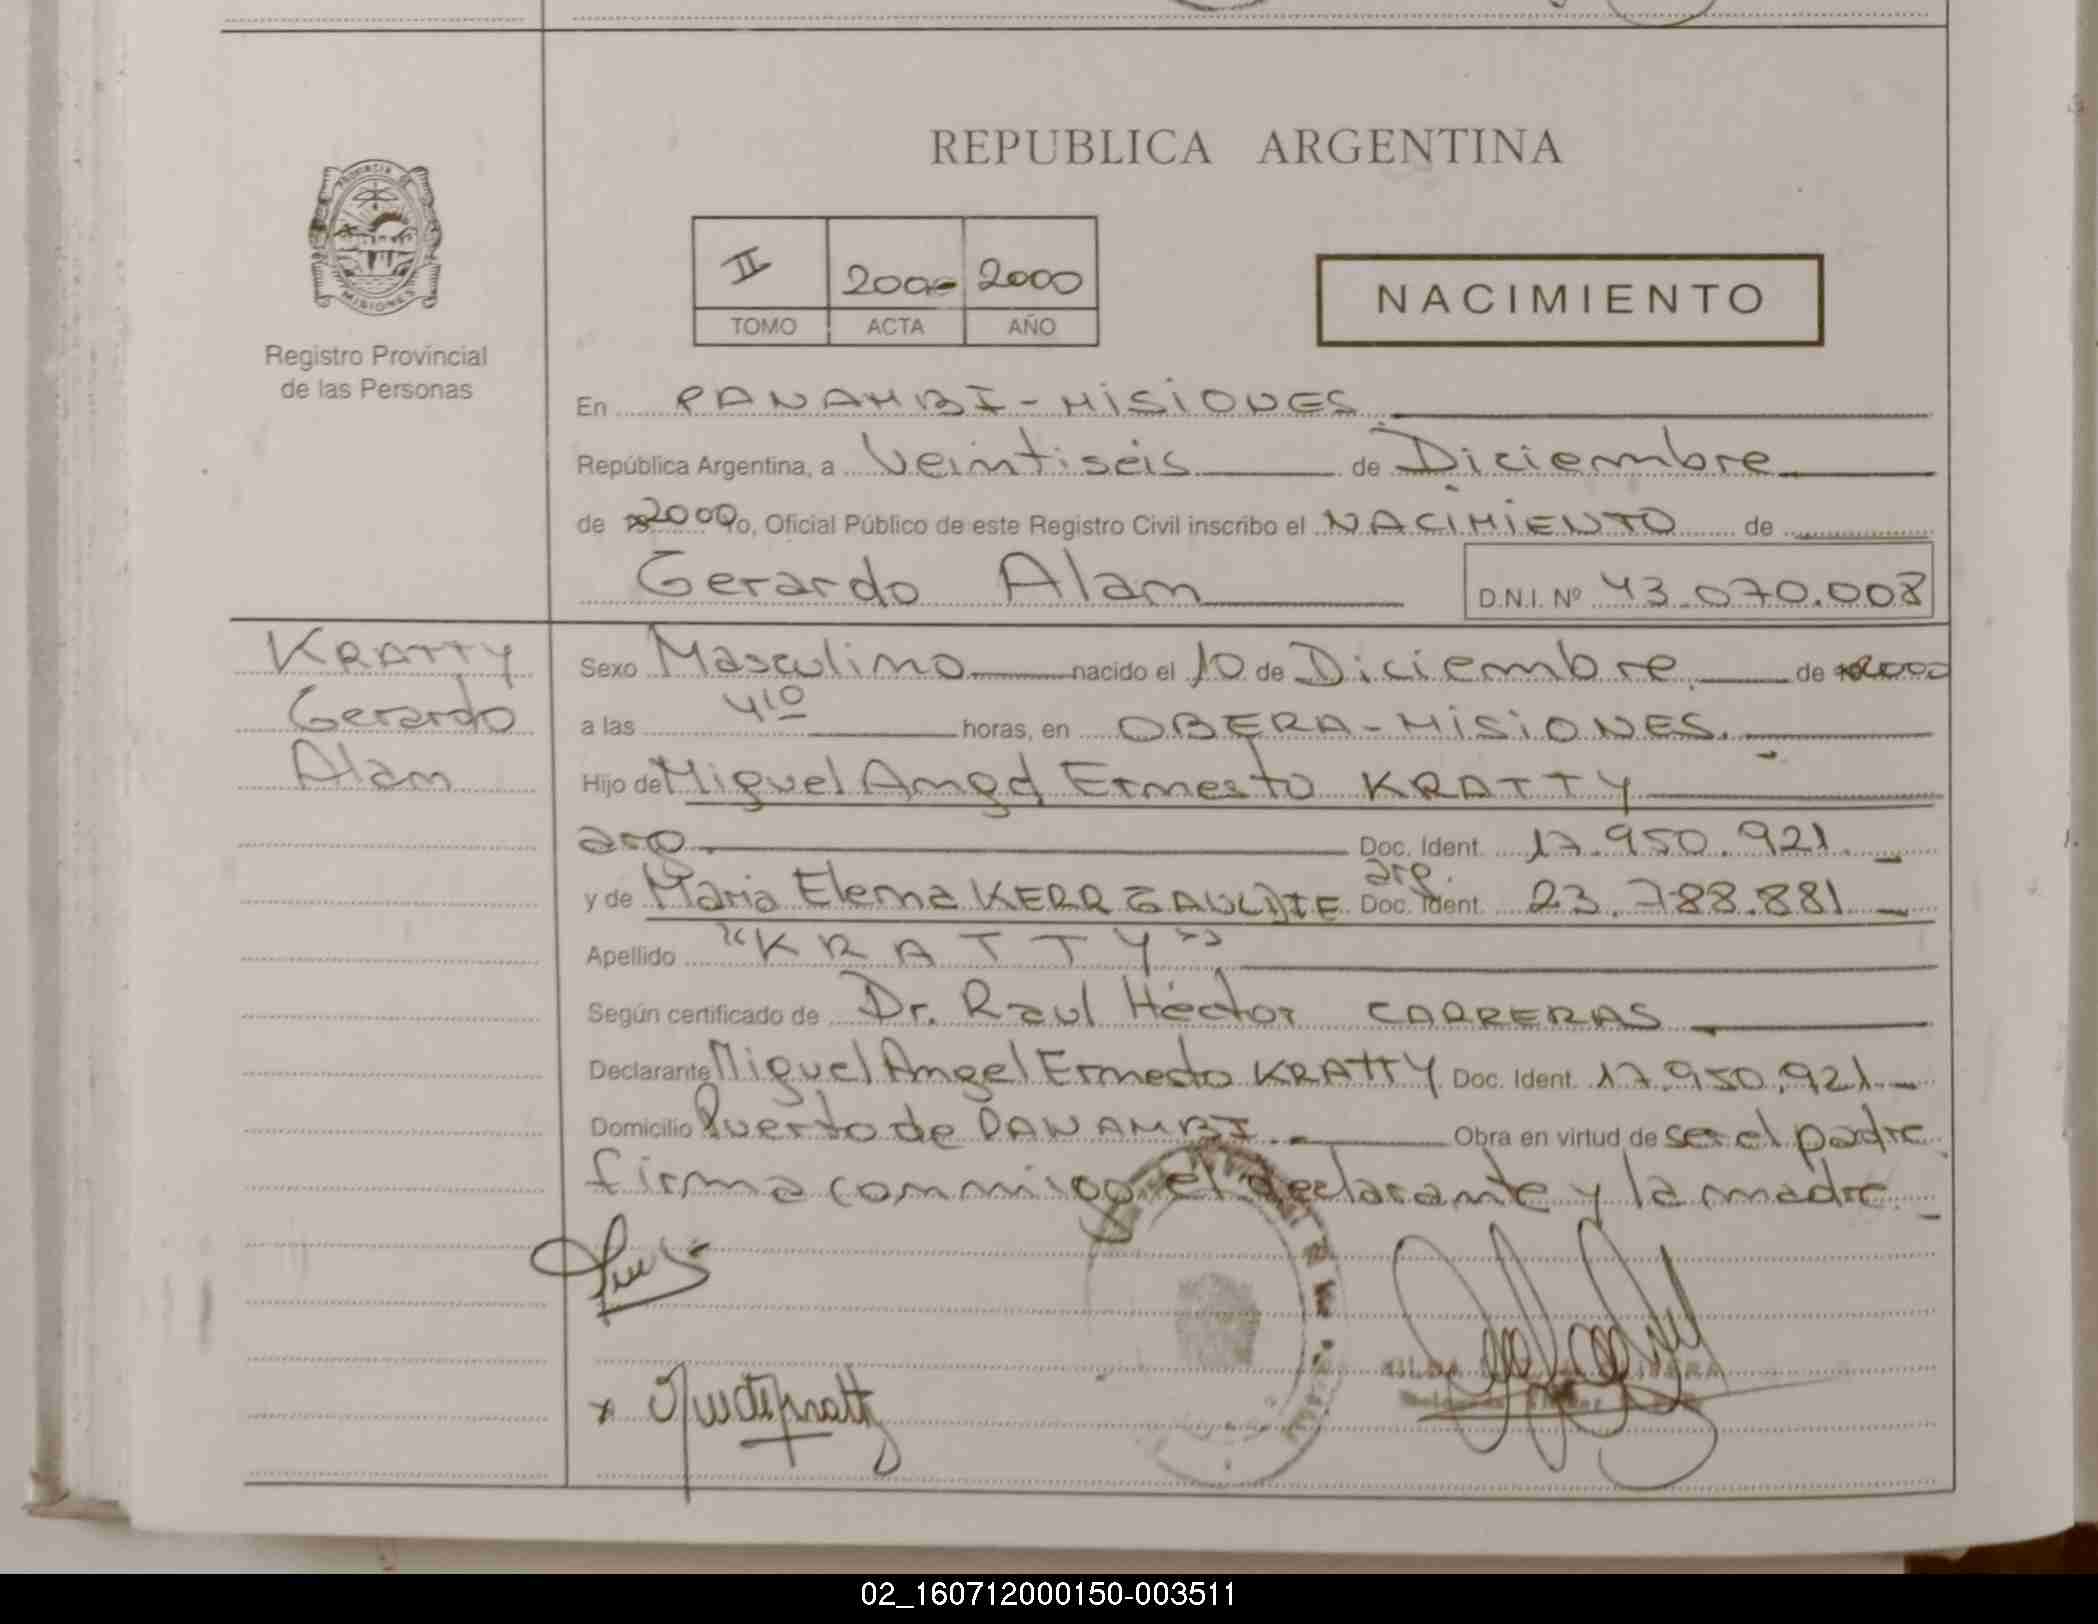 REPUBLICA ARGENTINA
PROVINCIA DE
MISIONES
II 200- 2000
TOMO ACTA AÑO
NACIMIENTO
Registro Provincial
de las Personas
En PANAMBI - MISIONES
República Argentina, a Veintiseis de Diciembre
de 2000 yo, Oficial Público de este Registro Civil inscribo el NACIMIENTO de
Gerardo Alam D.N.I. Nº 43.070.008
KRATTY
Gerardo
Alam
Sexo Masculino nacido el 10 de Diciembre de 2000
a las 4¹⁰ horas, en OBERA - MISIONES.
Hijo de Miguel Angel Ernesto KRATTY
arg. Doc. Ident. 17.950.921
arg.
y de Maria Elena Doc. Ident. 23.788.881
Apellido "KRATTY"
Según certificado de Dr. Raul Héctor CARRERAS
Declarante Miguel Angel Ernesto KRATTY Doc. Ident. 17.950.921
Domicilio Puerto de PANAMBI. Obra en virtud de ser el padre
firma conmigo el declarante y la madre.
02_160712000150-003511